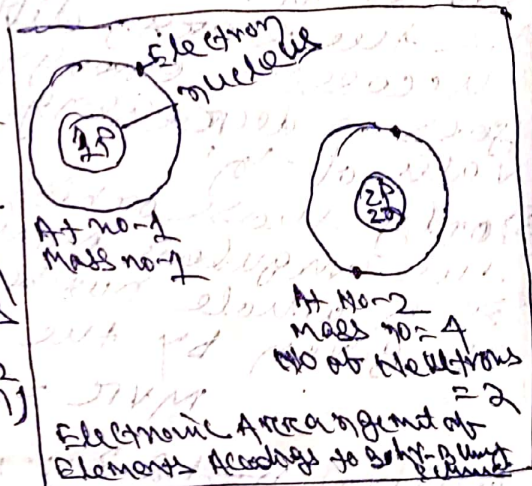 Electron
nucleus
1P
At no-1
Mass no-1
2P
2n
At No-2
mass no=4
No of Neutrons
=2
Electronic Arrangement of
Elements Accodings to Bohr-Bury